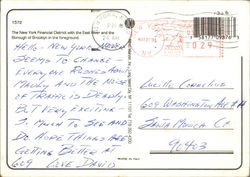 1572
The New York Financial District with the East River and the
Borough of Brooklyn in the foreground.
HELLO - NEW YORK NEVER
SEEMS TO CHANGE -
EVERYONE RUSHES AROUND
MADLY AND THE NOISE
OF TRAFFIC IS DEADLY
BUT VERY EXCITING -
SO MUCH TO SEE AND
DO HOPE THINGS ARE
GETTING BETTER AT
609 LOVE DAVID
0029
LUCILLE CORNELIUS
609 WASHINGTON AVE #
SANTA MONICA CA
90403